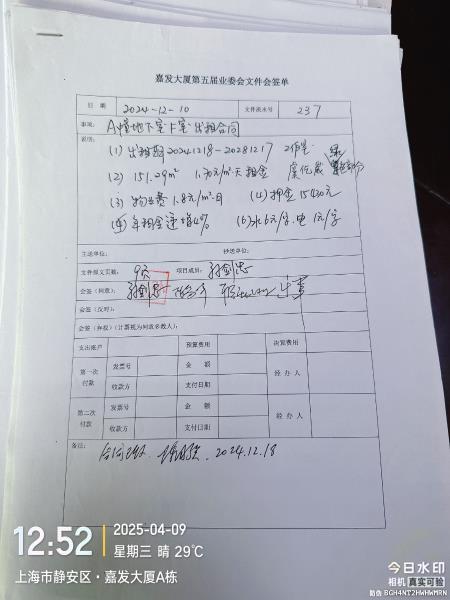 嘉发大厦第五届业委会文件会签单
日 期 2024-12-10 文件流水号 237
事项: A幢地下室F室出租合同
说明: (1) 出租期 20241218-20281217
(2) 151.29m² 1.70元/m²·天 租金
(3) 物业费 1.8元/m²·月 (4) 押金 15430元
年租金递增4% (6) 水6元/吨 电1元/字
主送单位: 抄送单位:
文件报文页数: 项目成员:
会签(同意):
会签(反对):
会签(弃权)(计票视为同意多数人):
支出账户 预算费用 决算费用
第一次付款 发票号 金 额 经 办 人
收款方 支付日期
第二次付款 发票号 金 额 经 办 人
收款方 支付日期
备注:
2024.12.18
12:52 2025-04-09
星期三 晴 29℃
上海市静安区·嘉发大厦A栋
今日水印
相机 真实可验
防伪 BGH4NT2HWHWMRN